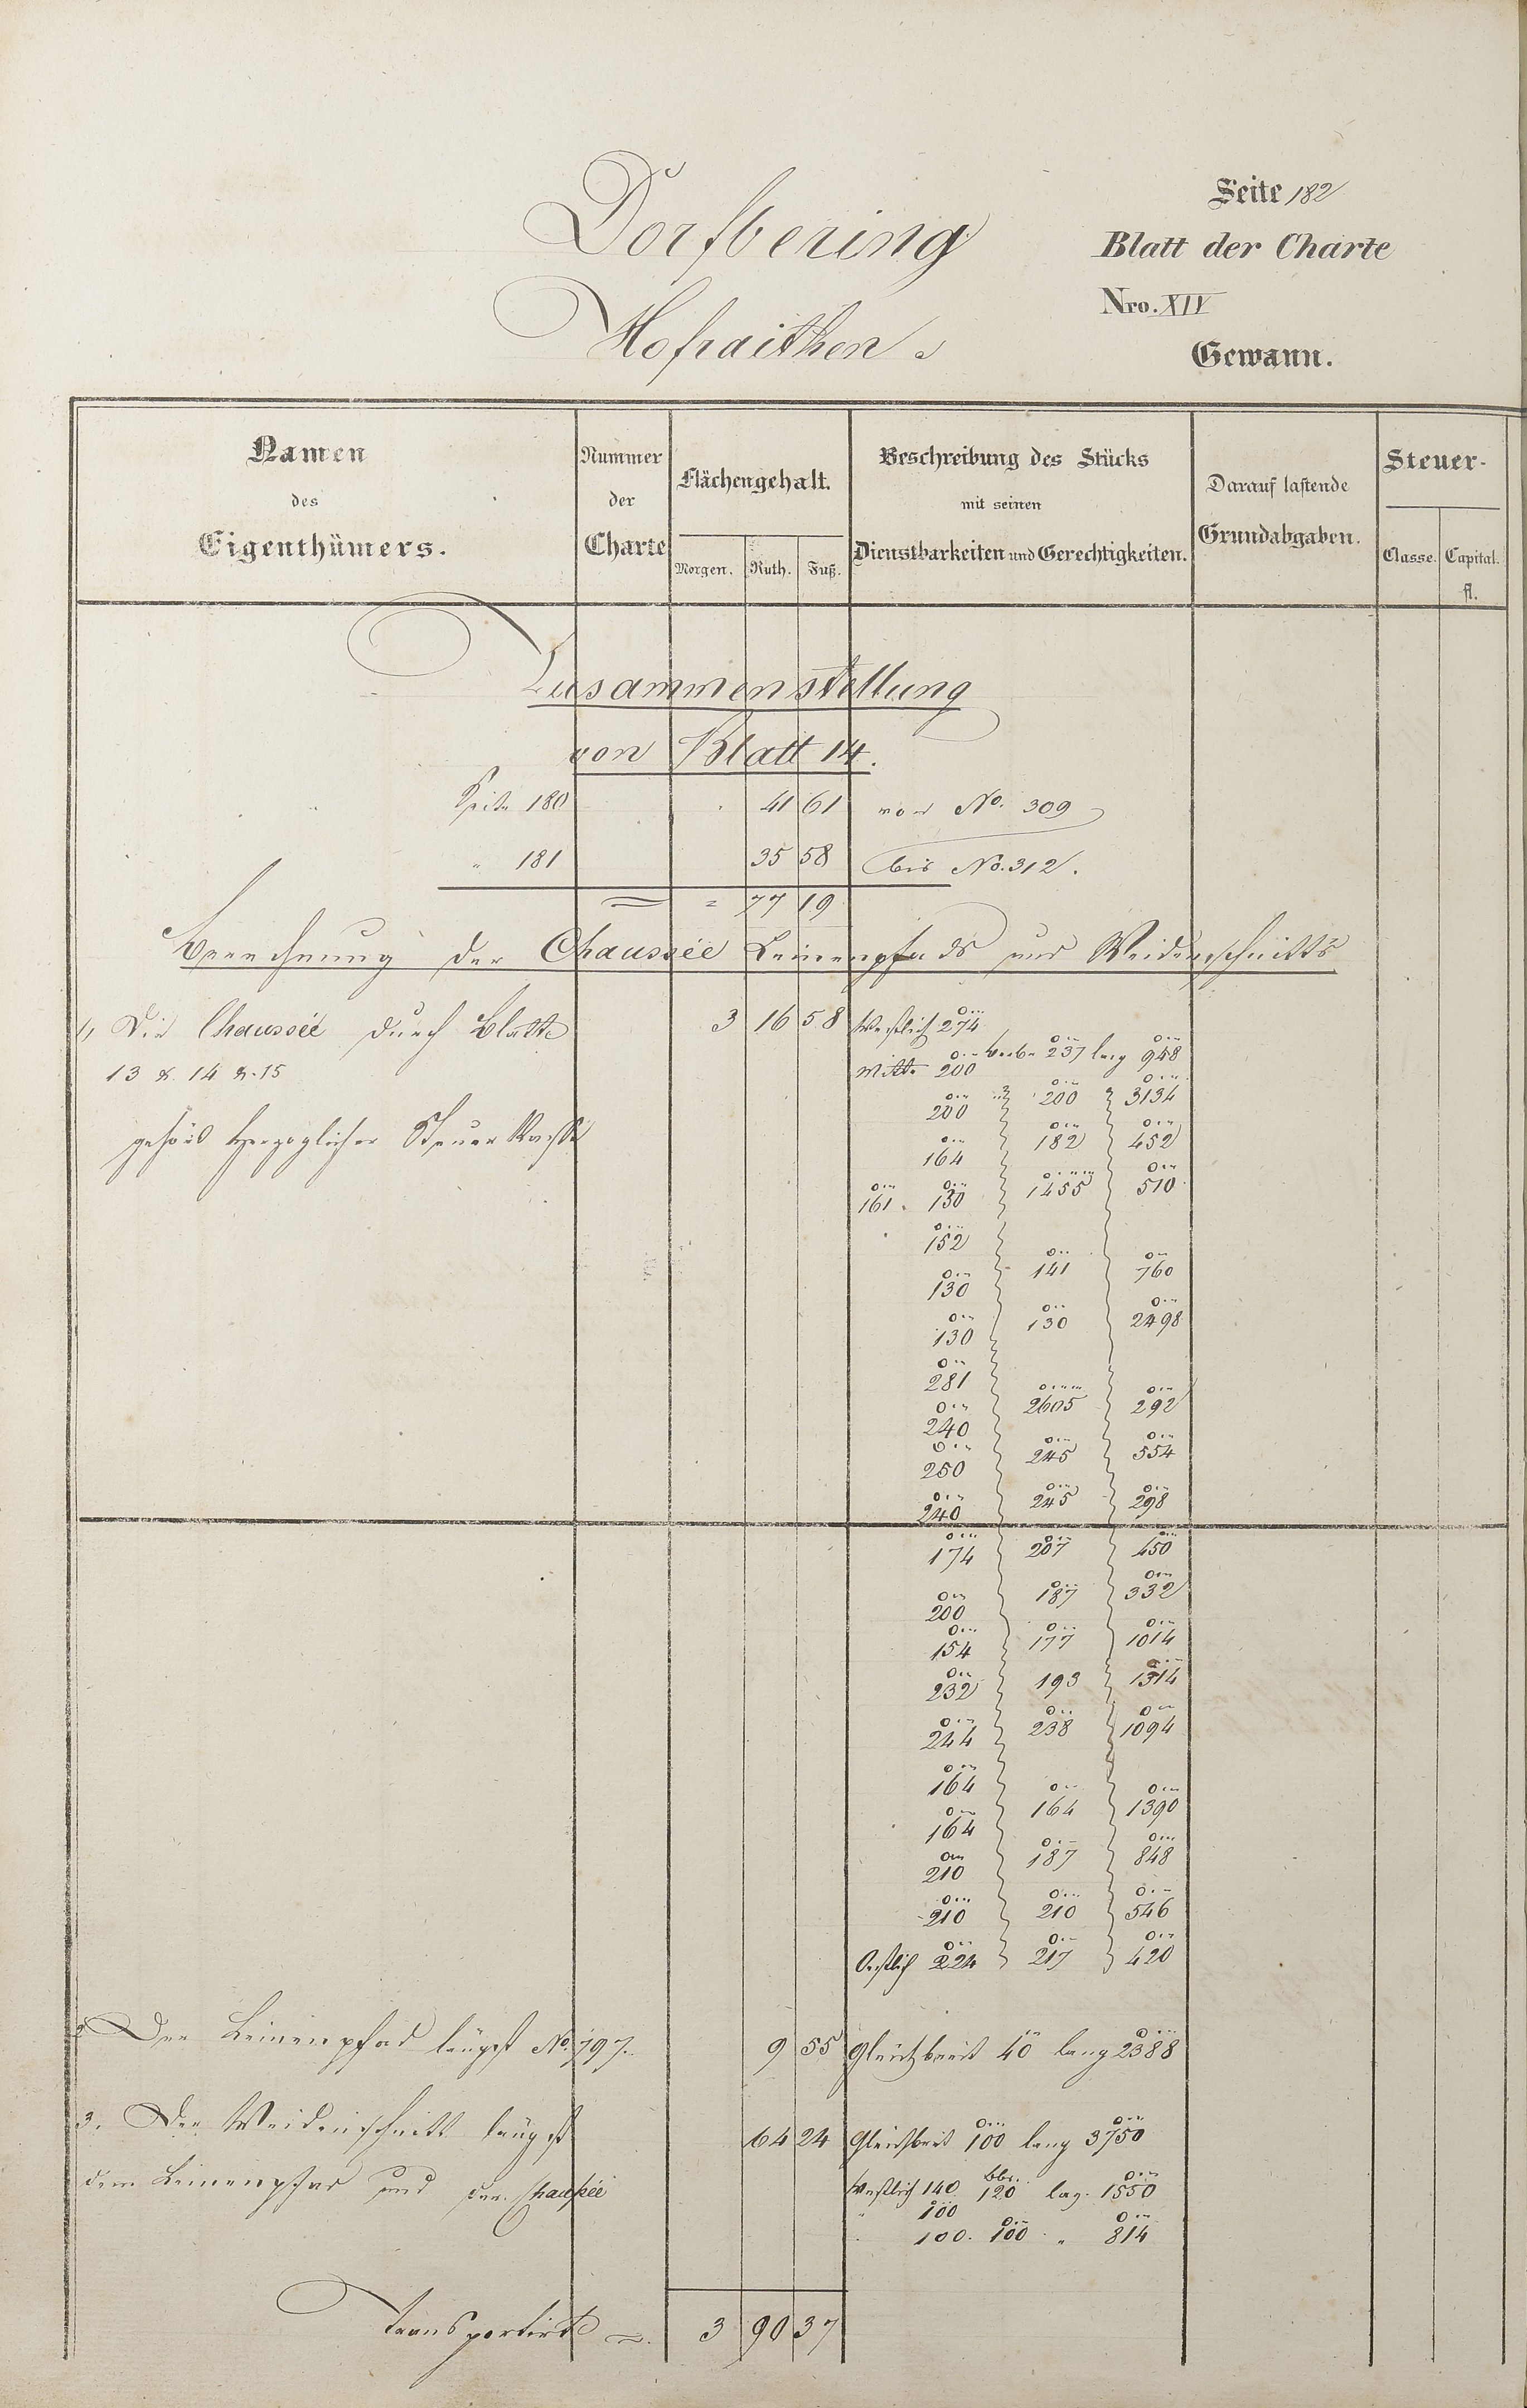 Dorfbering
Hofraithen
Seite 182
Blatt der Charte
Nro. XIV
Gewann.
Namen
des
Eigenthümers.
Nummer
der
Charte
Flächengehalt.
Morgen. Ruth. Fuß.
Beschreibung des Stücks
mit seinen
Dienstbarkeiten und Gerechtigkeiten.
Darauf lastende
Grundabgaben.
Steuer-
Classe. Capital.
fl.
Zusammenstellung
von Blatt 14.
Seite 180 41 61 von No. 309
" 181 35 58 bis No. 312.
= " 77 19
Berechnung der Chaussée Leinenpfads und Weidenschnitts
1, Die Chaussée durch Blatt 3 16 58 Westlich 274
13 & 14 & 15 Mittl. 200 237 lang 948
200 200 3134
gehört Herzoglicher Steuer Kasse 164 182 452
161 130 1455 510
152
130 141 760
130 130 2498
281
240 2605 292
250 245 554
240 245 298
174 207 450
200 187 332
154 177 1014
232 193 1314
244 238 1094
164
164 164 1390
210 187 848
210 210 546
Oestlich 224 217 420
2 Der Leinenpfad längst No. 197. 9 55 Gleichbreit 40 lang 2388
3. Der Weidenschnitt längst 64 24 Gleichbreit 100 lang 3750
dem Leinenpfad und der Chaussée Westlich 140 120 lag. 1550
" 100
100. 100 " 814
Transportirt = 3 90 37